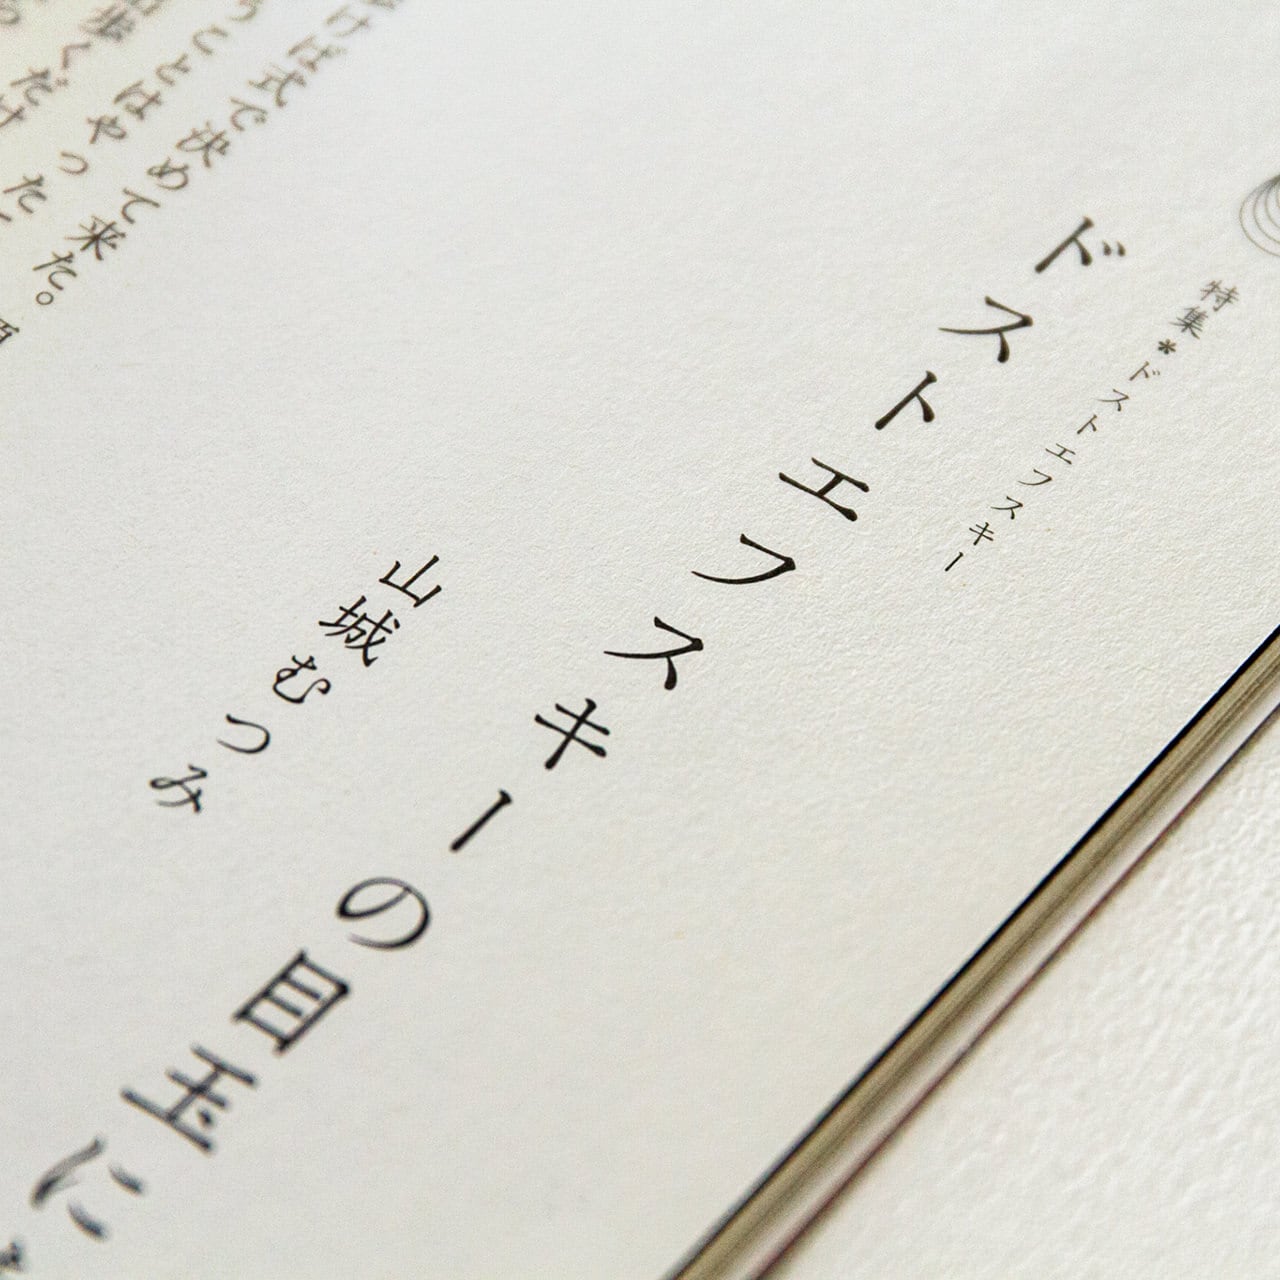 特集*ドストエフスキー
ドストエフスキーの目玉に
山城むつみ
けば式で決めて来た。
うことはやった
歩くだけ